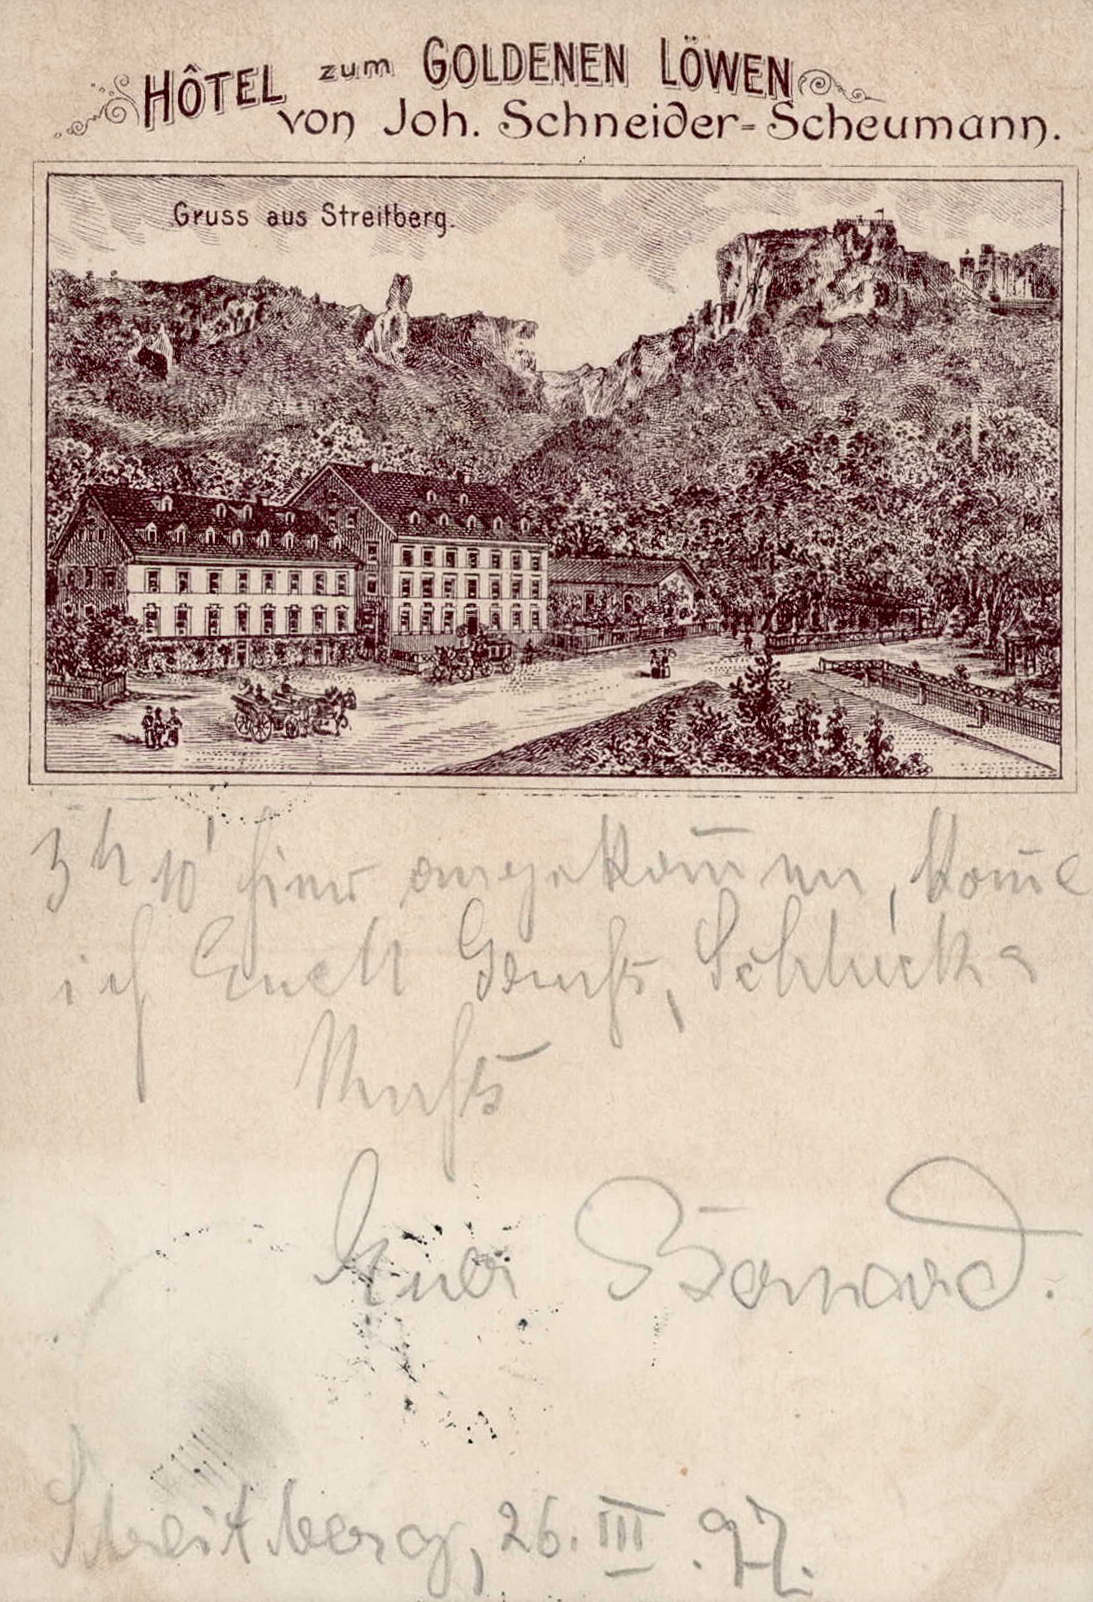 HÔTEL zum GOLDENEN LÖWEN
von Joh. Schneider-Scheumann.
Gruss aus Streitberg.
3 h 10' hier angekom̅en, kom̅e
ich
Euer
Streitberg, 26. III. 97.